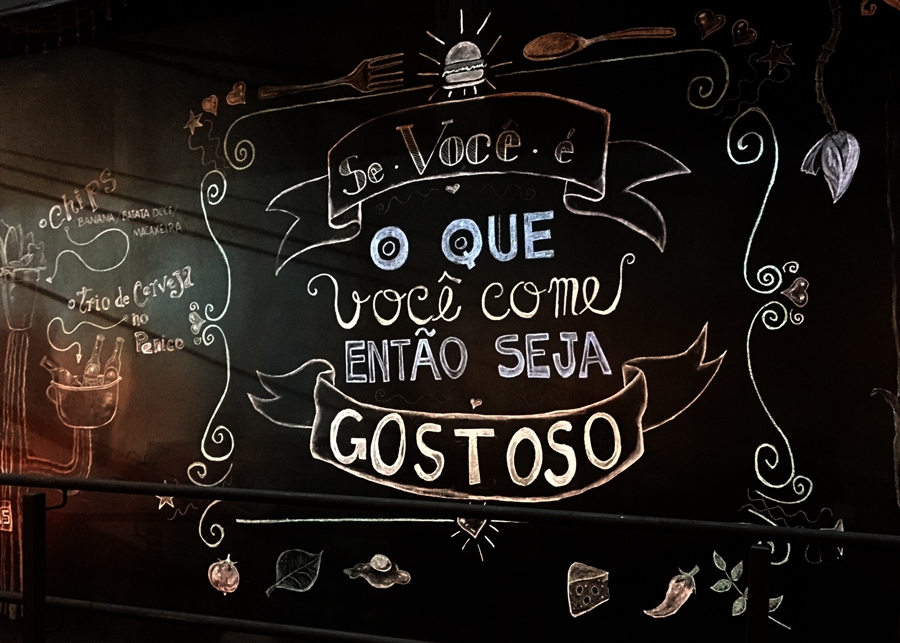 Se · Você · é
O QUE
você come
ENTÃO SEJA
GOSTOSO
chips
BANANA, BATATA DOCE,
MACAXEIRA
trio de Cerveja
no
Penico